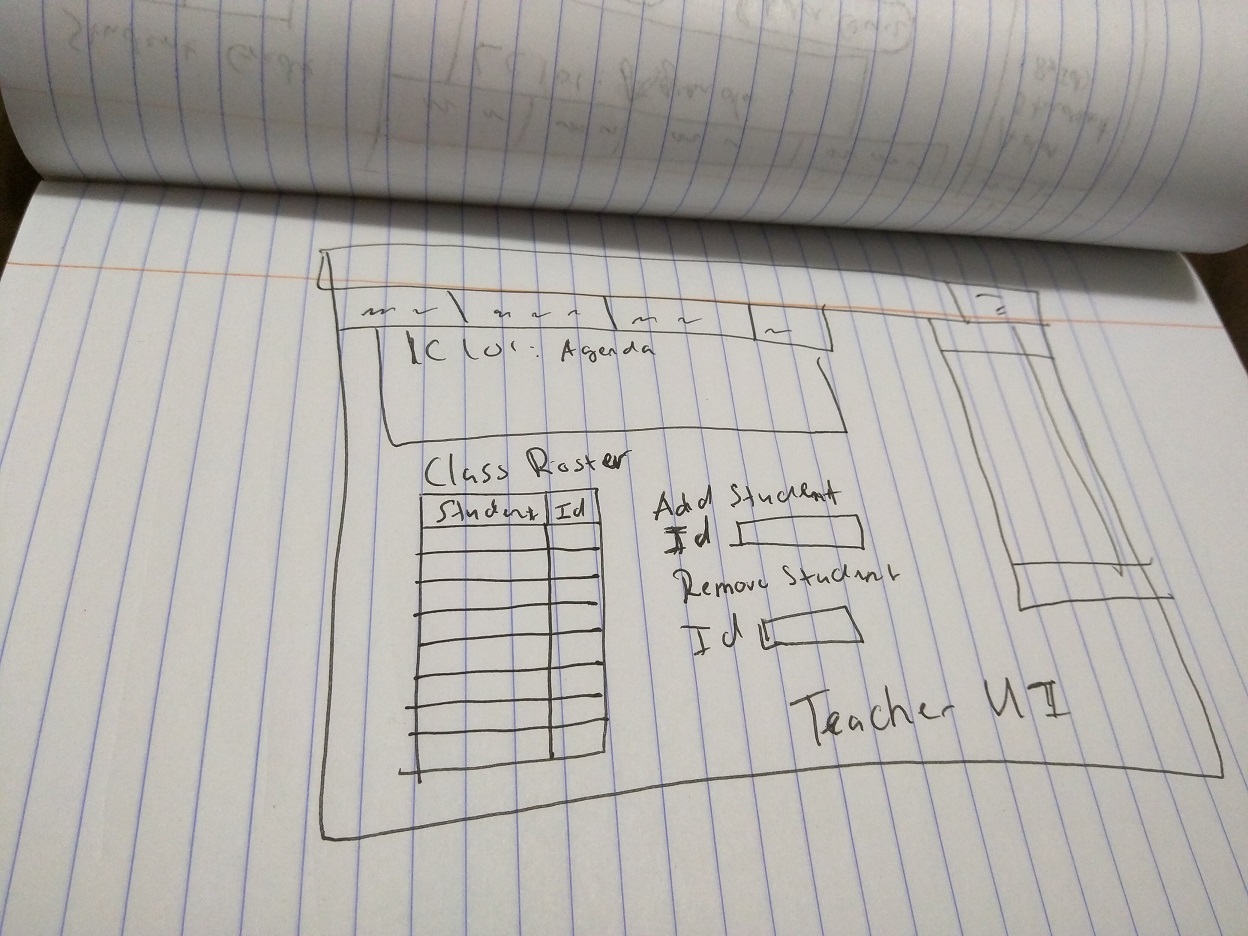 Agenda
Class Roster
Student Id
Add Student
Id
Remove Student
Id
Teacher UI